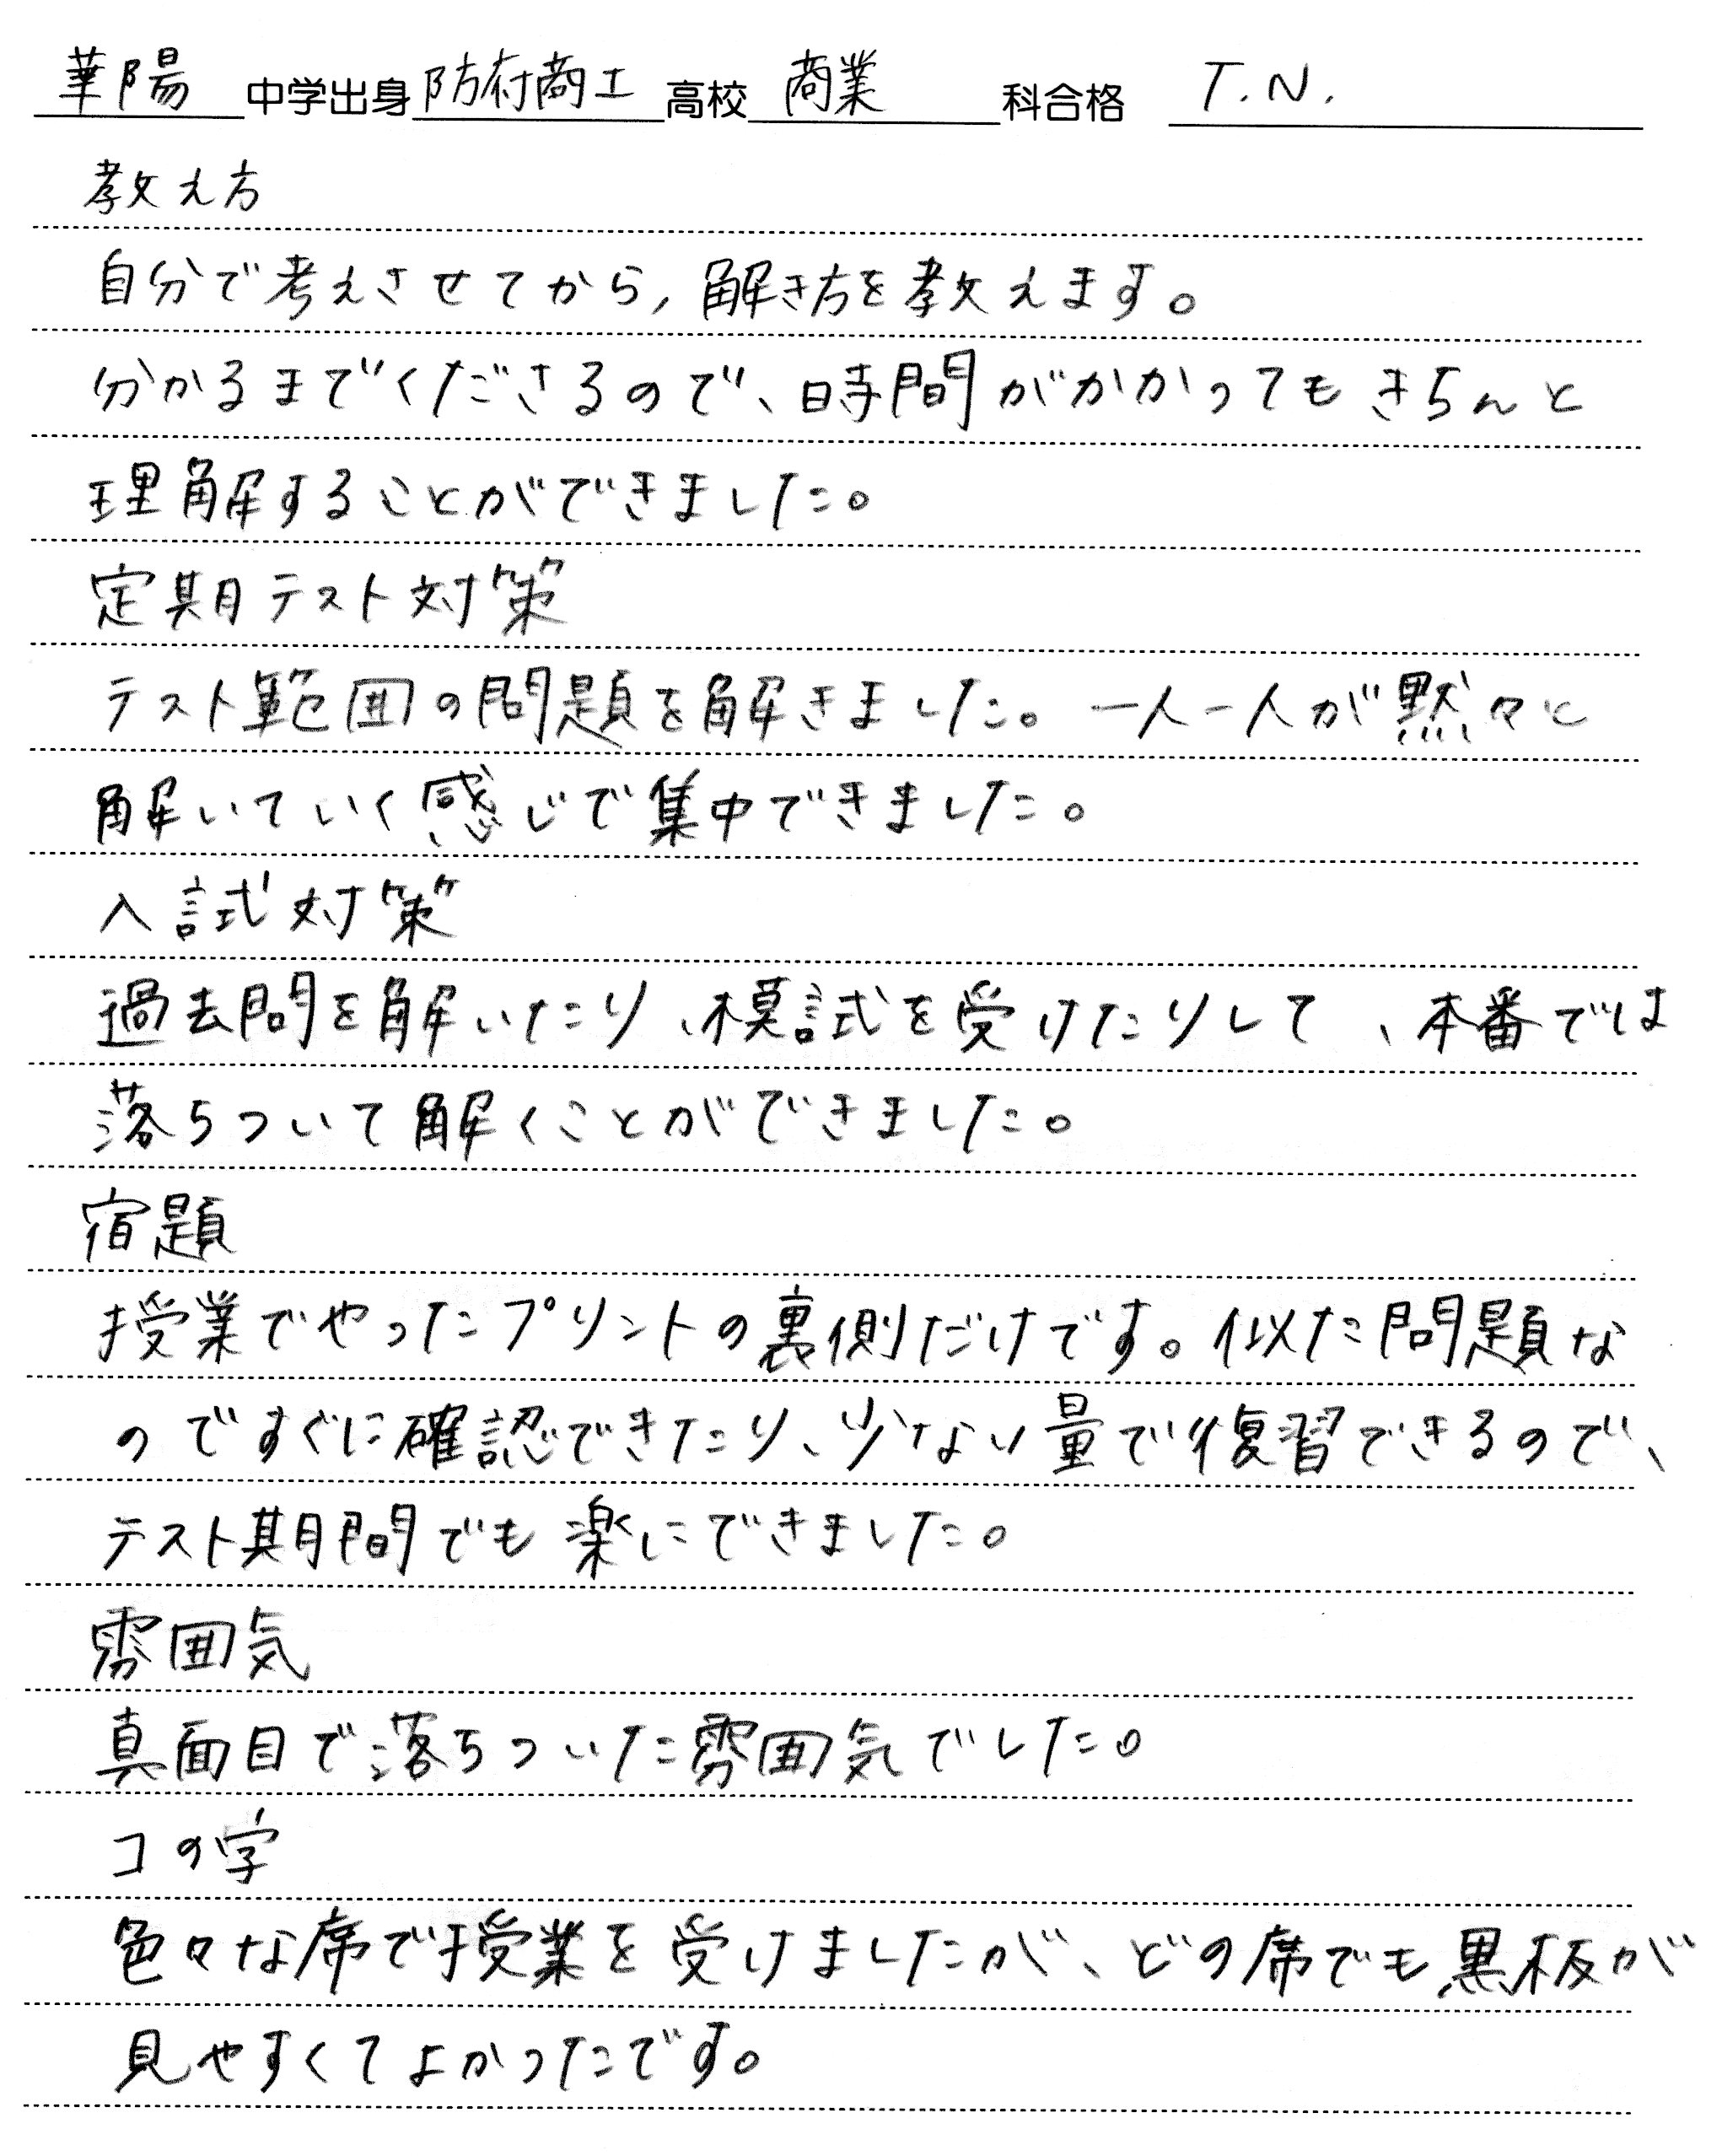 華陽 中学出身 防府商工 高校 商業 科合格 T.N.
教え方
自分で考えさせてから,解き方を教えます。
分かるまでくださるので、時間がかかってもきちんと
理解することができました。
定期テスト対策
テスト範囲の問題を解きました。一人一人が黙々と
解いていく感じで集中できました。
入試対策
過去問を解いたり、模試を受けたりして、本番では
落ちついて解くことができました。
宿題
授業でやったプリントの裏側だけです。似た問題な
のですぐに確認できたり、少ない量で復習できるので、
テスト期間でも楽にできました。
雰囲気
真面目で落ちついた雰囲気でした。
コの字
色々な席で授業を受けましたが、どの席でも黒板が
見やすくてよかったです。